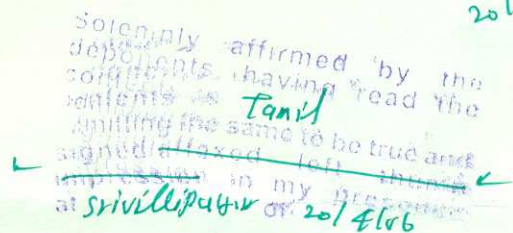 201
Solemnly affirmed by the
deponents having read the
contents in Tamil
admitting the same to be true and
signed/affixed left thumb
impression in my presence
at Srivilliputtur on 20/4/06